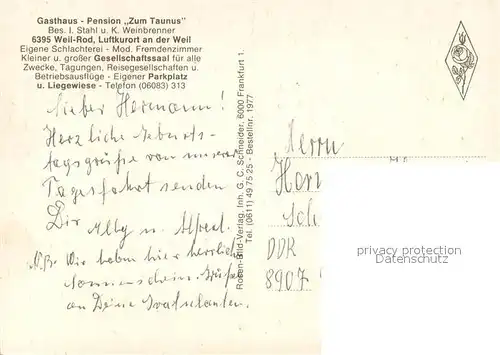 Gasthaus - Pension „Zum Taunus"
Bes. I. Stahl u. K. Weinbrenner
6395 Weil-Rod, Luftkurort an der Weil
Eigene Schlachterei - Mod. Fremdenzimmer
Kleiner u. großer Gesellschaftssaal für alle
Zwecke, Tagungen, Reisegesellschaften u.
Betriebsausflüge - Eigener Parkplatz
u. Liegewiese - Telefon (06083) 313
Lieber Hermann!
Herzliche Geburts-
tagsgrüße von unserer
Tagesfahrt senden
Dir Elly u. Alfred.
N.B. Wir haben hier herrlichen
Sonnenschein. Grüße
an Deine
Rosen-Bild-Verlag, Inh. G. C. Schneider, 6000 Frankfurt 1,
Tel. (0611) 49 75 25 - Bestellnr. 1977
Herrn
Her
Sch
DDR
8907
privacy protection